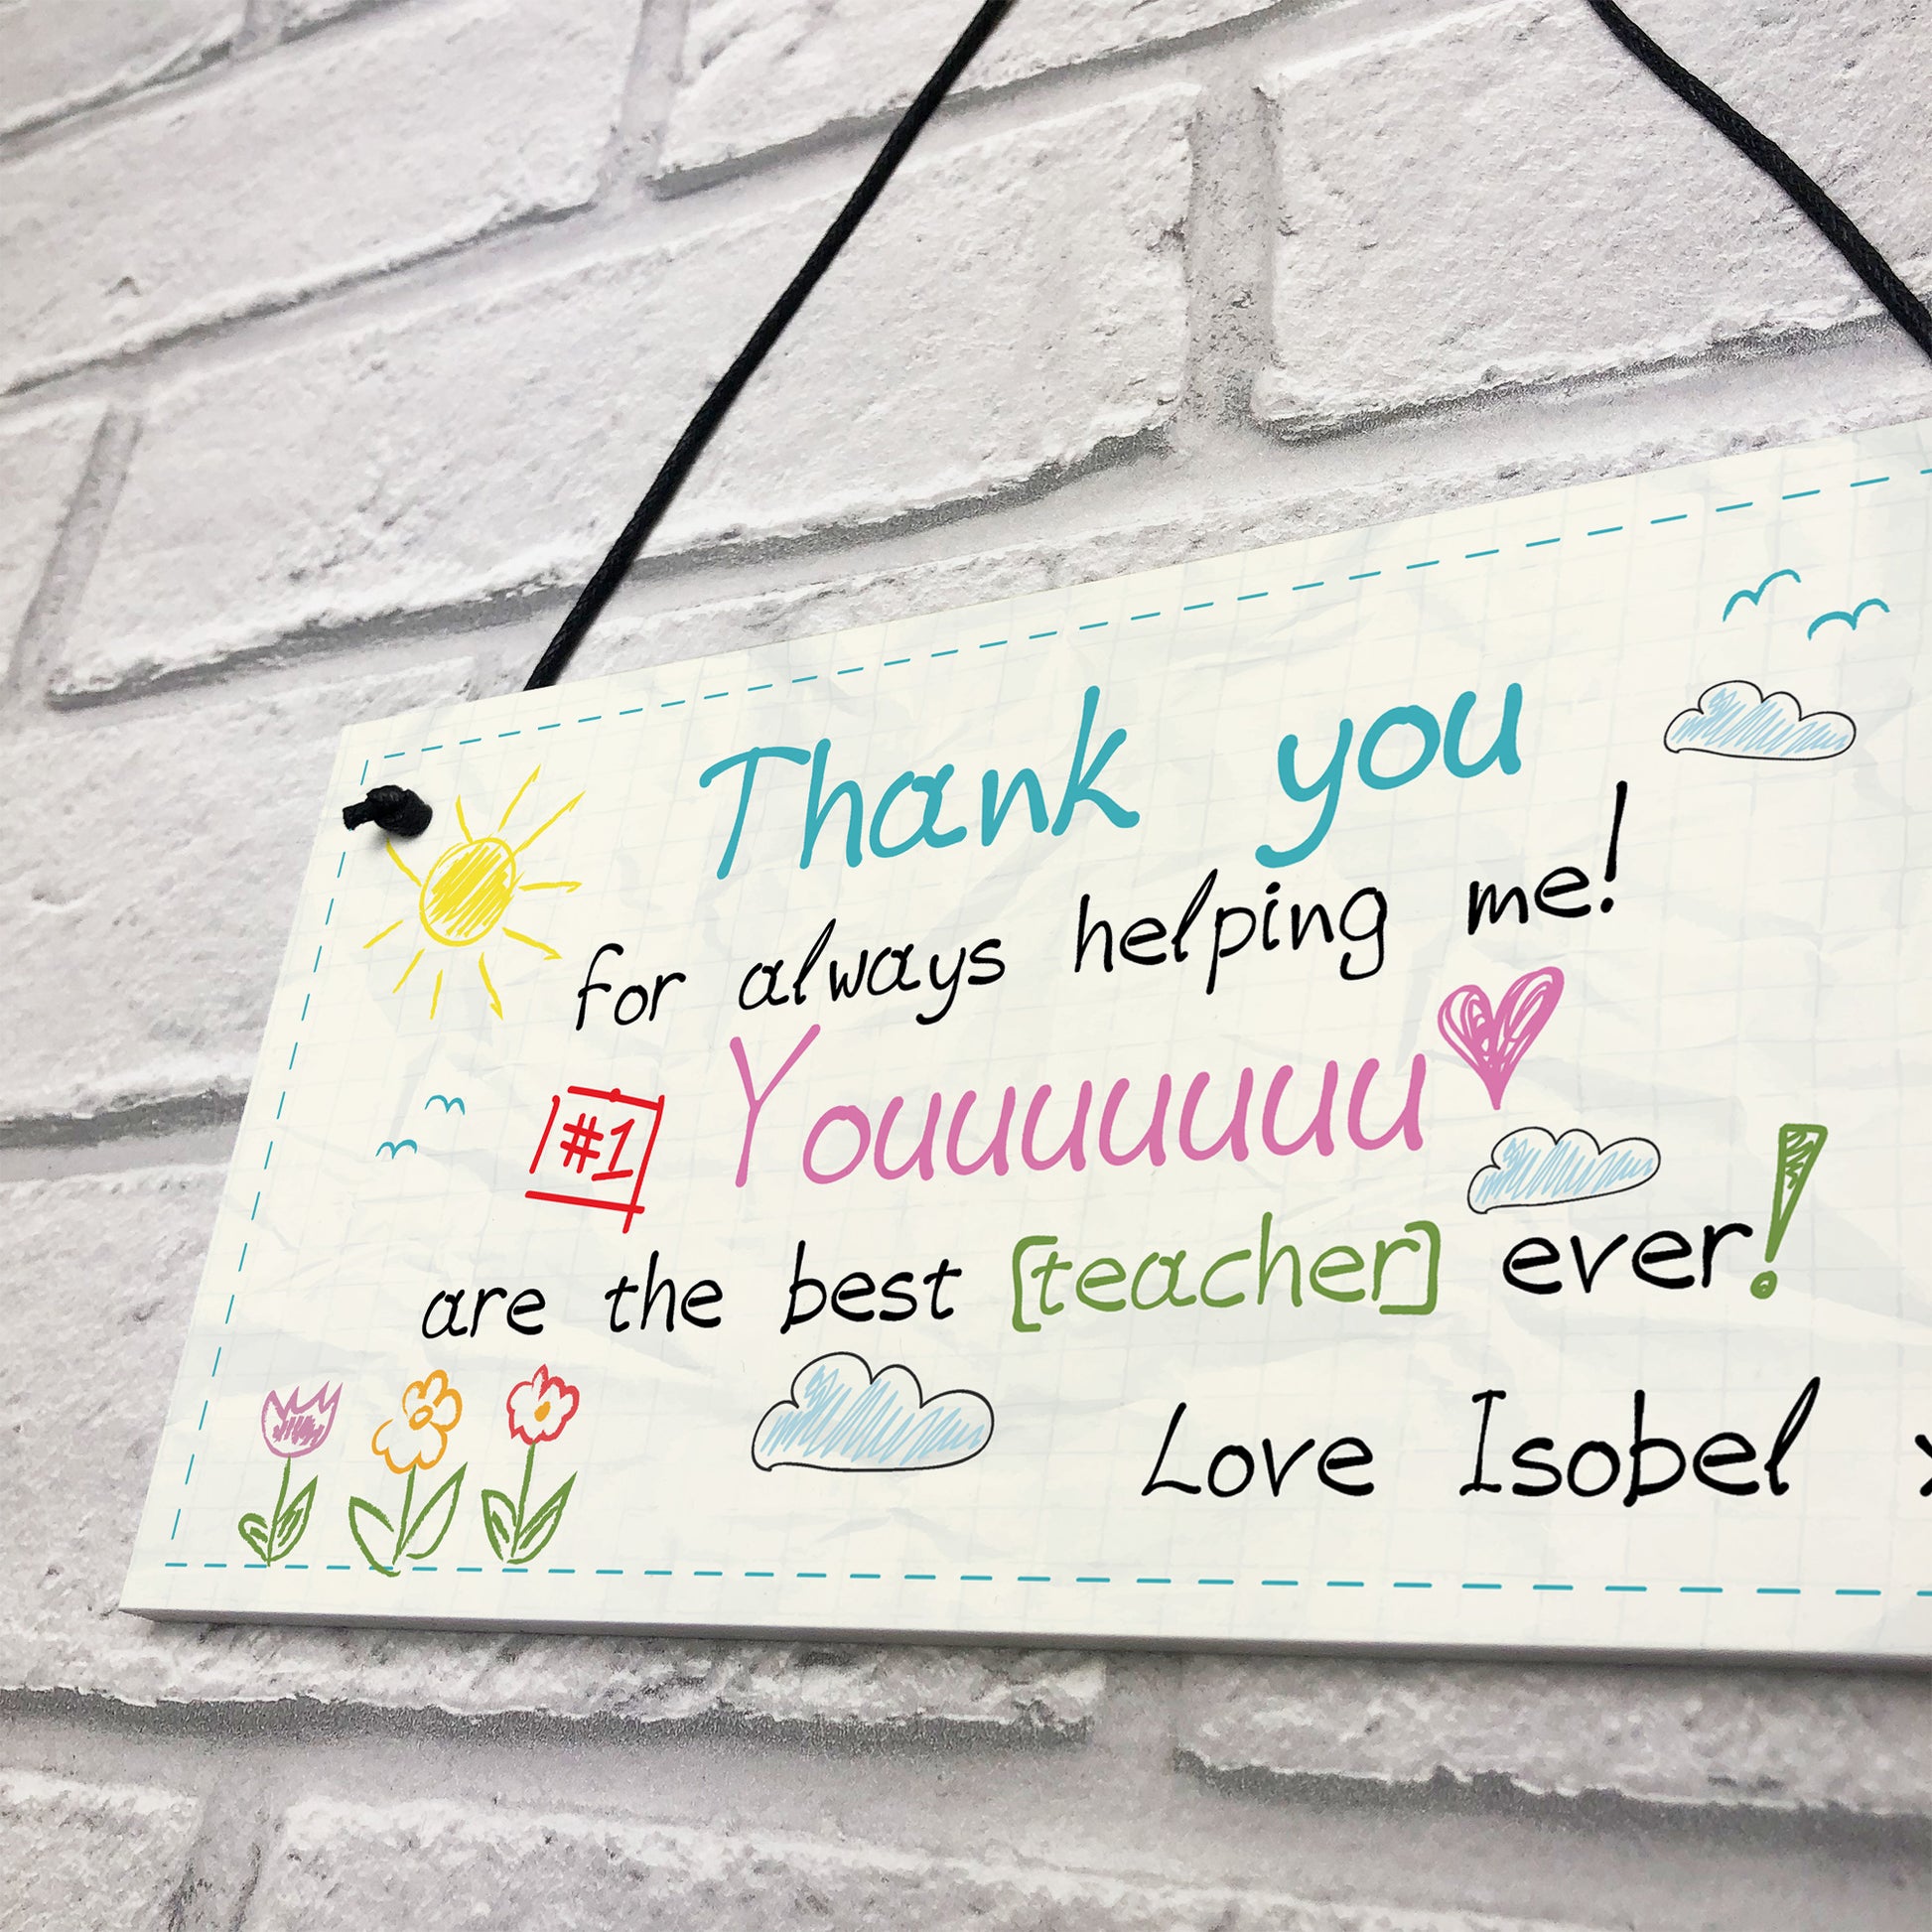 Thank you
for always helping me!
#1 Youuuuuuu
are the best [teacher] ever!
Love Isobel x